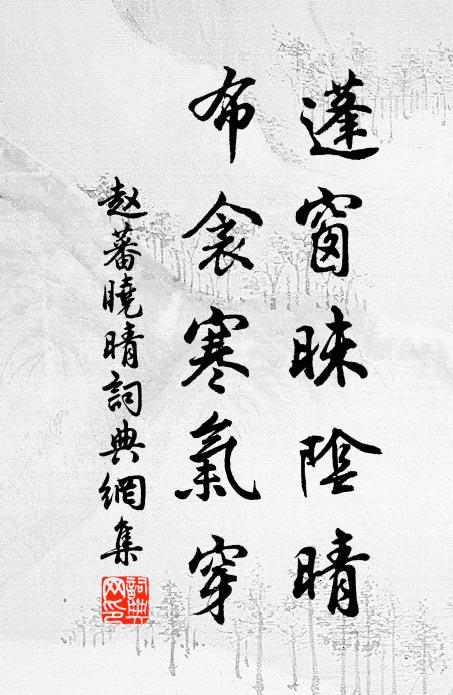 蓬窗昧陰晴
布衾寒氣穿
赵蕃曉晴詞典網集
詞典网印